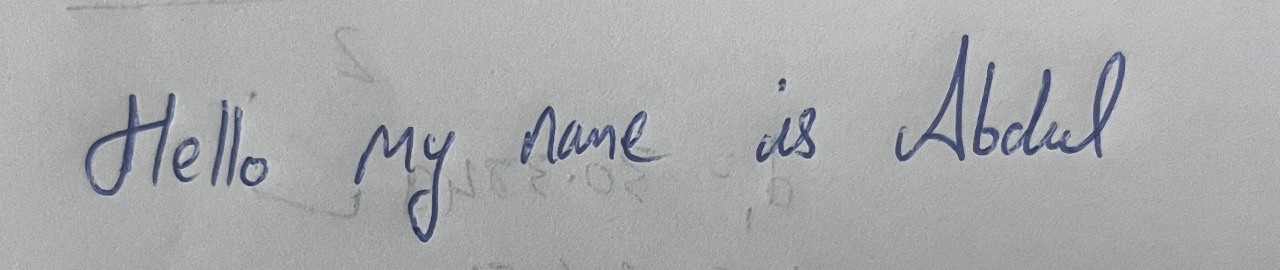 Hello my name is Abdul